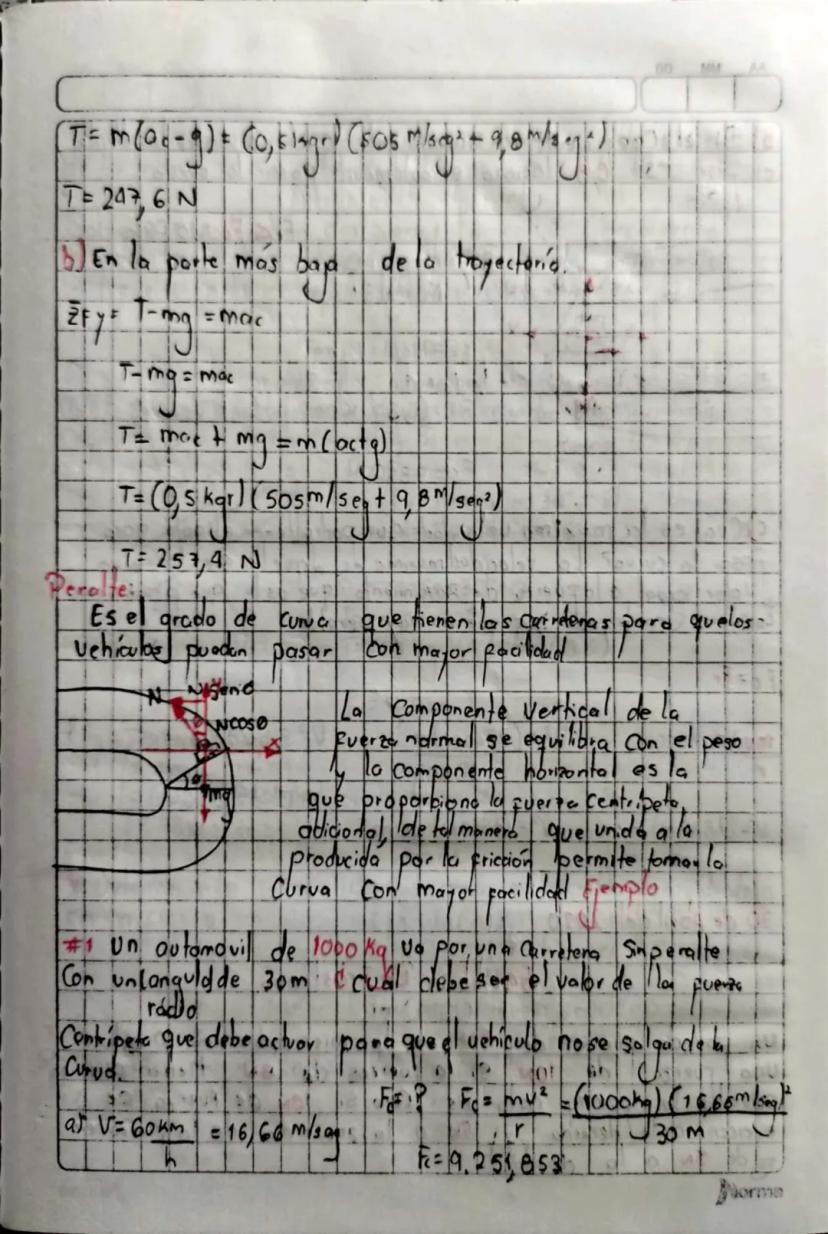 T = m(ac-g) = (0,5 kgr) (505 m/seg² - 9,8 m/seg²)
T = 247,6 N
b) En la parte más baja de la trayectoria.
ΣFy = T-mg = mac
T-mg = mac
T = mac + mg = m(ac+g)
T = (0,5 kgr) (505m/seg + 9,8 m/seg²)
T = 257,4 N
Peralte:
Es el grado de curva que tienen las carreteras para que los
vehículos puedan pasar con mayor facilidad
N Nsenθ
Ncosθ
θ
x
θ
mg
La componente vertical de la
fuerza normal se equilibra con el peso
y la componente horizontal es la
que proporciona la fuerza centrípeta,
adicional, de tal manera que unida a la
producida por la fricción permite tomar la
curva con mayor facilidad Ejemplo
#1 Un automovil de 1000 Kg va por una carretera sin peralte
Con un de 30m ¿cuál debe ser el valor de la fuerza
rádio
Centrípeta que debe actuar para que el vehículo no se salga de la
curva.
Fc = ? Fc = mv²/r = (1000kg) (16,66m/seg)²/30 m
a) V = 60 km/h = 16,66 m/seg
Fc = 9.251,853
Norma